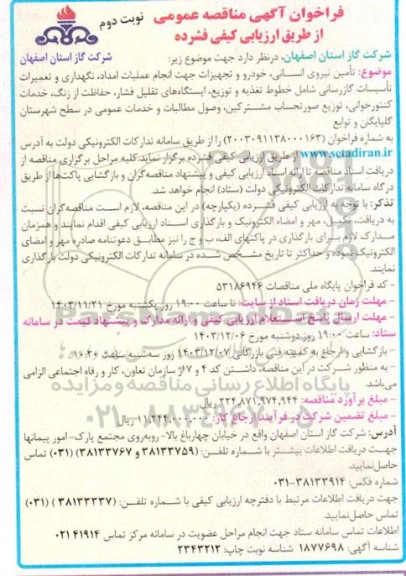 فراخوان آگهی مناقصه عمومی نوبت دوم
از طریق ارزیابی کیفی فشرده
شرکت گاز استان اصفهان
شرکت گاز استان اصفهان، درنظر دارد جهت موضوع زیر:
موضوع: تأمین نیروی انسانی، خودرو و تجهیزات جهت انجام عملیات امداد، نگهداری و تعمیرات
تأسیسات گازرسانی شامل خطوط تغذیه و توزیع، ایستگاه‌های تقلیل فشار، حفاظت از زنگ، خدمات
کنتورخوانی، توزیع صورتحساب مشترکین، وصول مطالبات و خدمات عمومی در سطح شهرستان
گلپایگان و توابع
به شماره فراخوان (۲۰۰۳۰۹۱۱۳۸۰۰۰۱۶۳) را از طریق سامانه تدارکات الکترونیکی دولت به آدرس
www.setadiran.ir از طریق ارزیابی کیفی فشرده برگزار نماید.کلیه مراحل برگزاری مناقصه از
دریافت اسناد مناقصه تا ارائه اسناد ارزیابی کیفی و پیشنهاد مناقصه‌گران و بازگشایی پاکت‌ها از طریق
درگاه سامانه تدارکات الکترونیکی دولت (ستاد) انجام خواهد شد.
تذکر: با توجه به ارزیابی کیفی فشرده (یکپارچه) در این مناقصه، لازم است مناقصه‌گران نسبت
به دریافت، تکمیل، مهر و امضاء الکترونیک و بارگذاری اسناد ارزیابی کیفی اقدام نمایند و همزمان
مدارک لازم برای بارگذاری در پاکتهای الف، ب و ج را نیز مطابق دعوتنامه صادره مهر و امضای
الکترونیک نموده و حداکثر تا تاریخ مشخص شده در سامانه تدارکات الکترونیکی دولت بارگذاری
نمایند.
- کد فراخوان پایگاه ملی مناقصات ۵۳۱۸۶۹۴۶
- مهلت زمان دریافت اسناد از سایت: تا ساعت ۱۹:۰۰ روز یکشنبه مورخ ۱۴۰۳/۱۱/۲۱
- مهلت ارسال پاسخ استعلام ارزیابی کیفی و ارائه مدارک و پیشنهاد قیمت در سامانه
ستاد: ساعت ۱۹:۰۰ روز دوشنبه مورخ ۱۴۰۳/۱۲/۰۶
- بازگشایی و ارجاع به کمیته فنی بازرگانی ۱۴۰۳/۱۲/۰۷ روز سه‌شنبه ساعت
- به منظور شرکت در این مناقصه، داشتن کد ۴ و ۷ از سازمان تعاون، کار و رفاه اجتماعی الزامی
می‌باشد.
- مبلغ برآورد مناقصه: ۲۲۴,۸۷۱,۹۷۴,۹۴۴ ریال
- مبلغ تضمین شرکت در فرآیند ارجاع کار: ۱۱,۲۴۴,۰۰۰,۰۰۰ ریال
آدرس: شرکت گاز استان اصفهان واقع در خیابان چهارباغ بالا- روبه‌روی مجتمع پارک- امور پیمانها
جهت دریافت اطلاعات بیشتر با شماره تلفن: (۳۸۱۳۳۷۵۹ و ۳۸۱۳۳۷۶۷) (۰۳۱) تماس
حاصل‌نمایید.
شماره فکس: ۳۸۱۳۳۹۱۴-۰۳۱
جهت دریافت اطلاعات مرتبط با دفترچه ارزیابی کیفی با شماره تلفن: (۳۸۱۳۳۳۳۷) (۰۳۱)
تماس حاصل‌نمایید.
اطلاعات تماس سامانه ستاد جهت انجام مراحل عضویت در سامانه مرکز تماس ۴۱۹۱۴ ۰۲۱
شناسه آگهی: ۱۸۷۷۶۹۸ شناسه نوبت چاپ: ۲۳۴۳۲۱۲
ParsNamadData
پایگاه اطلاع رسانی مناقصه و مزایده